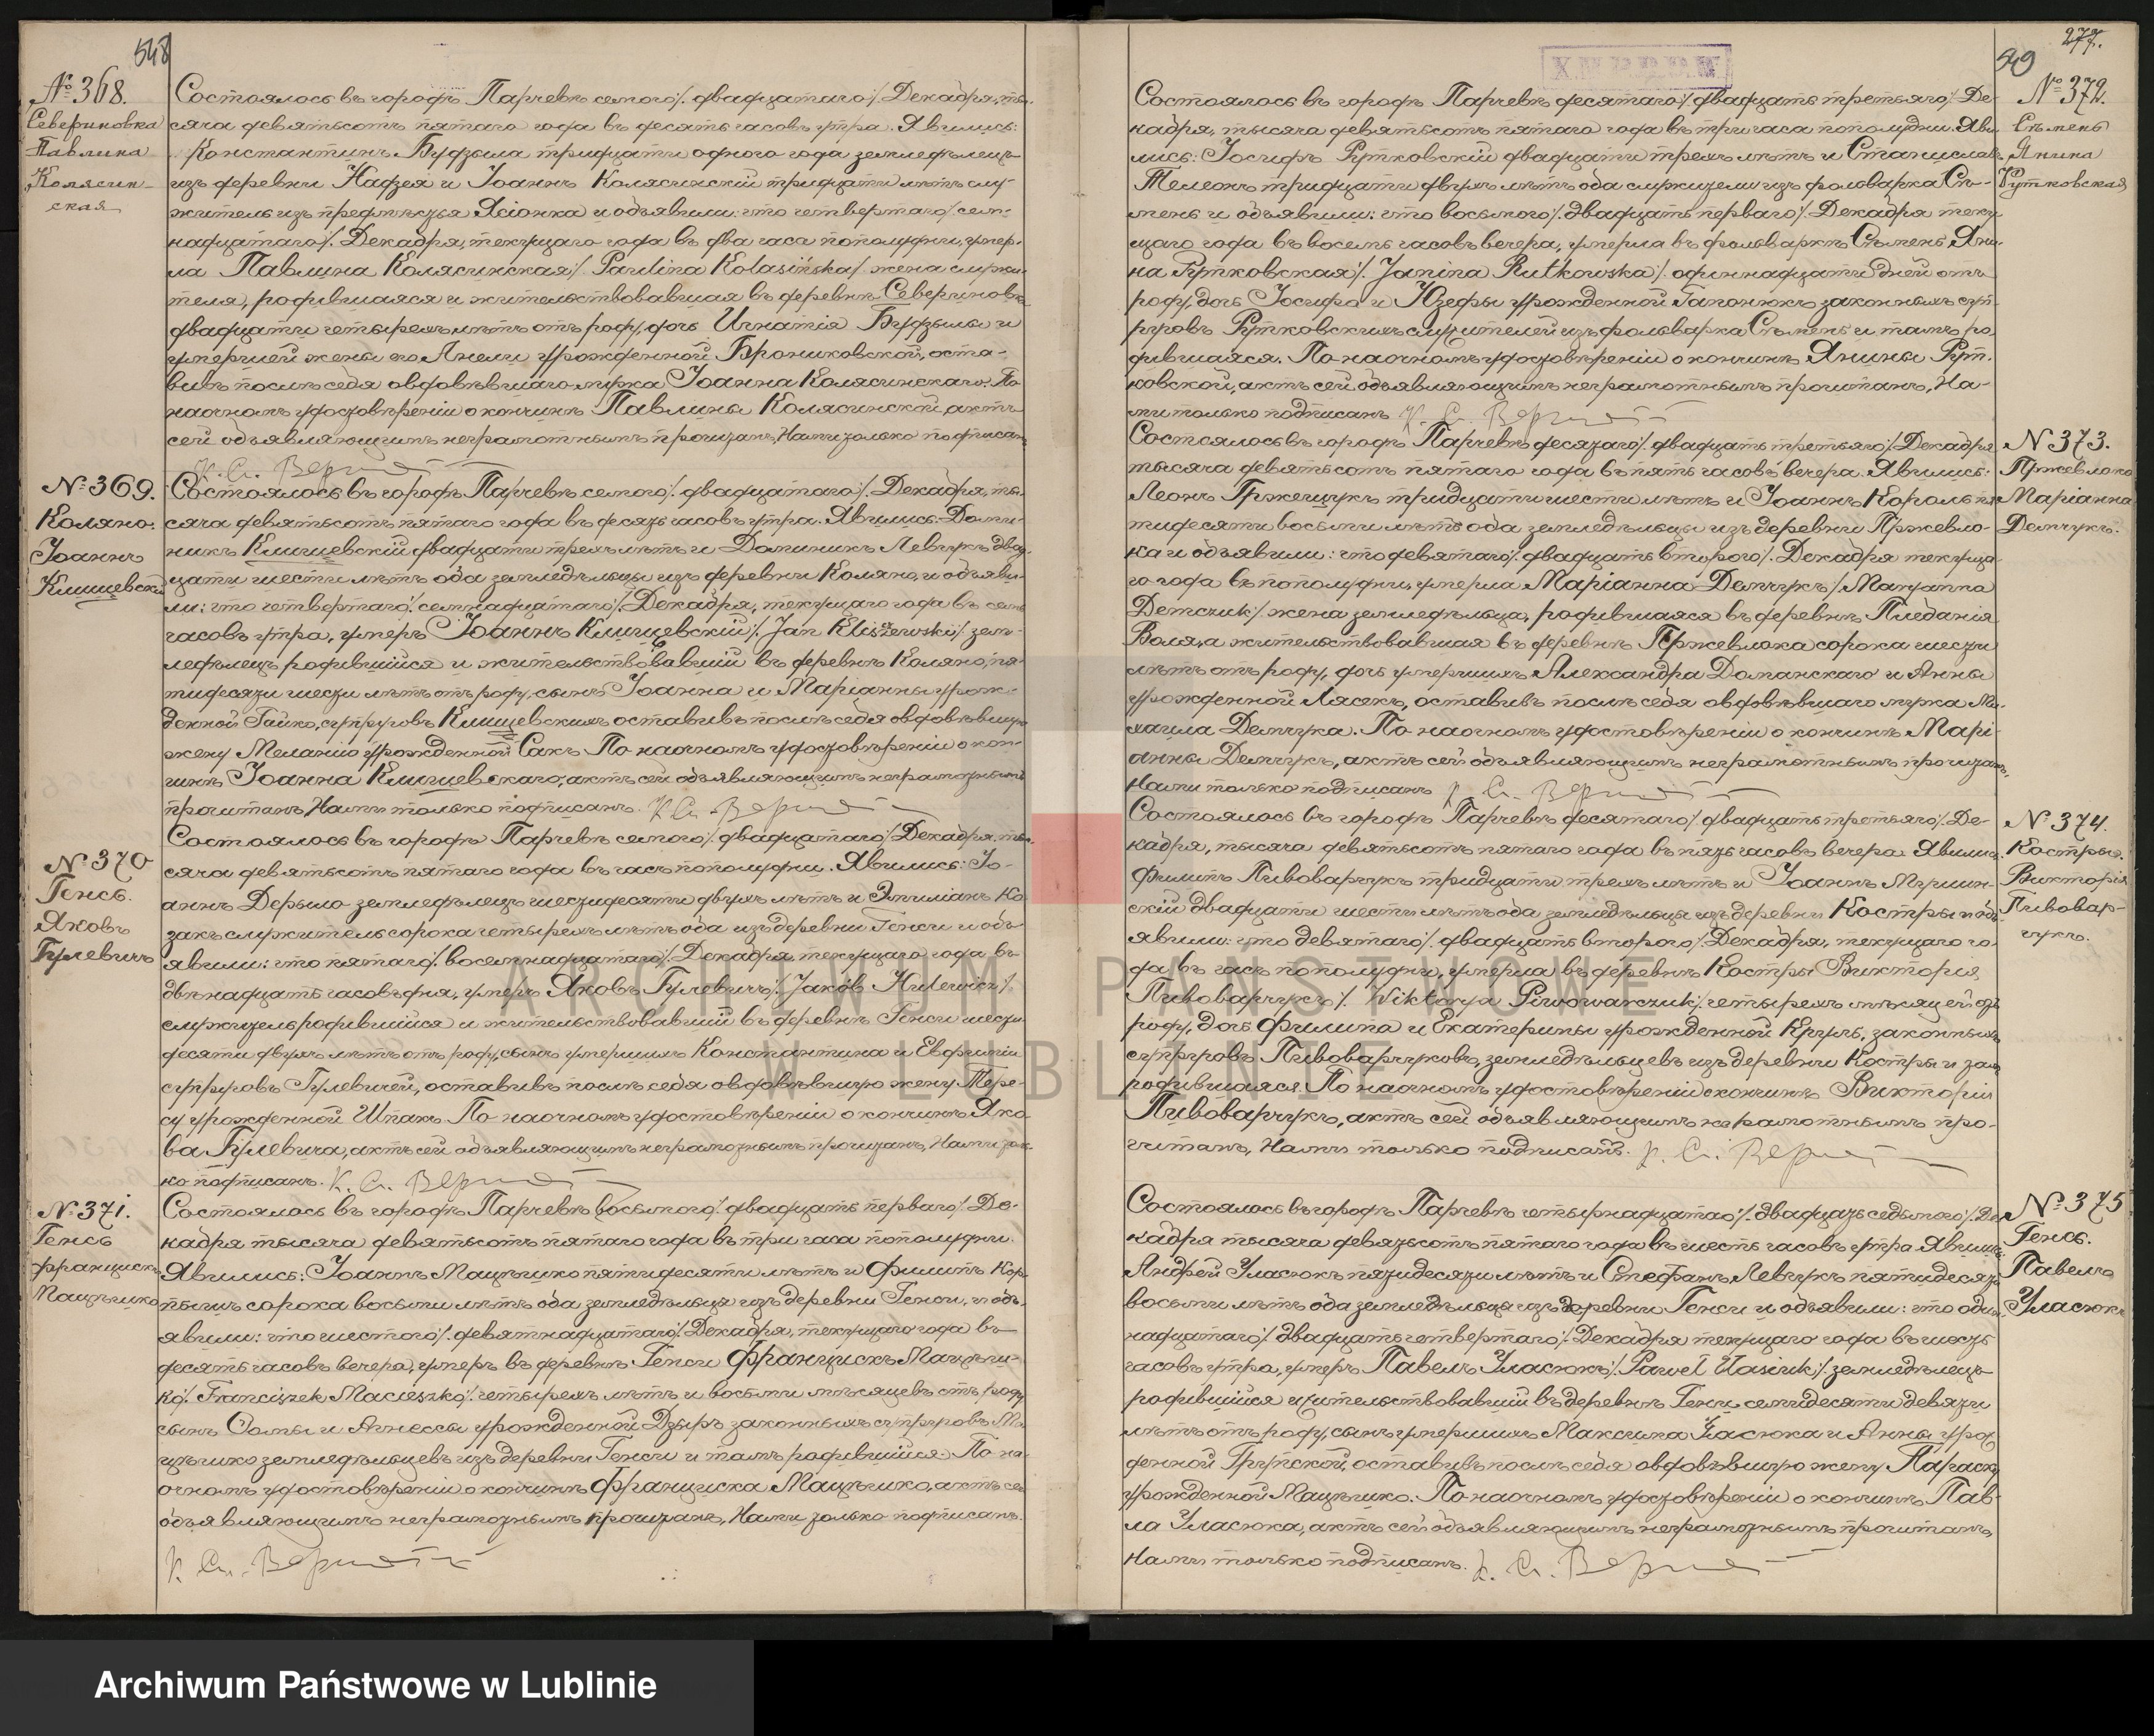 548
№ 368.
Севериновка
Павлина
Колясин-
ская
Состоялось въ городѣ Парчевѣ седьмого /двадцатаго/ Декабря, ты-
сяча девятьсотъ пятаго года въ десять часовъ утра. Явились:
Константинъ Будзыла тридцати одного года земледѣлецъ
изъ деревни Надзея и Іоаннъ Колясинскій тридцати лѣтъ слу-
житель изъ предмѣстья Ясіонка и объявили: что четвертаго /сем-
надцатаго/ Декабря, текущаго года въ два часа пополудни, умер-
ла Павлина Колясинская /Paulina Kolasińska/ жена служи-
теля, родившаяся и жительствовавшая въ деревнѣ Севериновкѣ
двадцати четырехъ лѣтъ отъ роду, дочь Игнатія Будзылы и
умершей жены его Анели урожденной Брониковской, оста-
вивъ послѣ себя овдовѣвшаго мужа Іоанна Колясинскаго. По
наочномъ удостовѣреніи о кончинѣ Павлины Колясинской, актъ
сей объявляющимъ неграмотнымъ прочитанъ, Нами только подписанъ
№ 369.
Коляно.
Іоаннъ
Клишевскій
Состоялось въ городѣ Парчевѣ седьмого /двадцатаго/ Декабря, ты-
сяча девятьсотъ пятаго года въ десять часовъ утра. Явились: Доми-
никъ Клишевскій двадцати трехъ лѣтъ и Доминикъ Левчукъ двад-
цати шести лѣтъ оба земледѣльцы изъ деревни Коляно, и объяви-
ли: что четвертаго /семнадцатаго/ Декабря, текущаго года въ семь
часовъ утра, умеръ Іоаннъ Клишевскій /Jan Kliszewski/ зем-
ледѣлецъ родившійся и жительствовавшій въ деревнѣ Коляно, пя-
тидесяти шести лѣтъ отъ роду, сынъ Іоанна и Маріанны урож-
денной Гайко, супруговъ Клишевскихъ оставивъ послѣ себя овдовѣвшую
жену Меланію урожденной Сакъ. По наочномъ удостовѣреніи о кон-
чинѣ Іоанна Клишевскаго, актъ сей объявляющимъ неграмотнымъ
прочитанъ, Нами только подписанъ.
№ 370
Генсь.
Яковъ
Гулевичъ
Состоялось въ городѣ Парчевѣ седьмого /двадцатаго/ Декабря, ты-
сяча девятьсотъ пятаго года въ часъ пополудни. Явились: Іо-
аннъ Дерыло земледѣлецъ шестидесяти двухъ лѣтъ и Эмиліанъ Ко-
закъ служитель сорока четырехъ лѣтъ оба изъ деревни Генси и объ-
явили: что пятаго /восемнадцатаго/ Декабря, текущаго года въ
двѣнадцать часовъ дня, умеръ Яковъ Гулевичъ /Jakób Hulewicz/
служитель родившійся и жительствовавшій въ деревнѣ Генси шести-
десяти двухъ лѣтъ отъ роду, сынъ умершихъ Константина и Евфиміи
супруговъ Гулевичей, оставивъ послѣ себя овдовѣвшую жену Тере-
су урожденной Шпакъ. По наочномъ удостовѣреніи о кончинѣ Яко-
ва Гулевича, актъ сей объявляющимъ неграмотнымъ прочитанъ, Нами толь-
ко подписанъ.
№ 371.
Генсь
Францискъ
Мацѣшко
Состоялось въ городѣ Парчевѣ восьмого /двадцать перваго/ Де-
кабря тысяча девятьсотъ пятаго года въ три часа пополудни.
Явились: Іоаннъ Мацѣшко пятидесяти лѣтъ и Филиппъ
сорока восьми лѣтъ оба земледѣльцы изъ деревни Генси, и объ-
явили: что шестого /девятнадцатаго/ Декабря, текущаго года въ
десять часовъ вечера, умеръ въ деревнѣ Генси Францискъ Мацѣш-
ко /Franciszek Macieszko/ четырехъ лѣтъ и восьми мѣсяцевъ отъ роду
сынъ Ѳомы и Агнессы урожденной Дзыръ законныхъ супруговъ Ма-
цѣшко земледѣльцевъ изъ деревни Генси и тамъ родившійся. По на-
очномъ удостовѣреніи о кончинѣ Франциска Мацѣшко, актъ сей
объявляющимъ неграмотнымъ прочитанъ, Нами только подписанъ.
277.
549
№ 372.
Сѣмень
Янина
Рутковская
Состоялось въ городѣ Парчевѣ десятаго /двадцать третьяго/ Де-
кабря, тысяча девятьсотъ пятаго года въ три часа пополудни. Яви-
лись: Іосифъ Рутковскій двадцати трехъ лѣтъ и Станиславъ
Телеонъ тридцати двухъ лѣтъ оба служители изъ фольварка Сѣ-
мень и объявили: что восьмого /двадцать перваго/ Декабря теку-
щаго года въ восемь часовъ вечера, умерла въ фольваркѣ Сѣмень Яни-
на Рутковская /Janina Rutkowska/ одиннадцати дней отъ
роду, дочь Іосифа и Юзефы урожденной Гапонюкъ законныхъ суп-
руговъ Рутковскихъ служителей изъ фольварка Сѣмень и тамъ ро-
дившаяся. По наочномъ удостовѣреніи о кончинѣ Янины Рут-
ковской, актъ сей объявляющимъ неграмотнымъ прочитанъ, На-
ми только подписанъ
№ 373.
Пржевлока
Маріанна
Демчукъ.
Состоялось въ городѣ Парчевѣ десятаго /двадцать третьяго/ Декабря
тысяча девятьсотъ пятаго года въ пять часовъ вечера. Явились:
Леонъ Гржещукъ тридцати шести лѣтъ и Іоаннъ Король пя-
тидесяти восьми лѣтъ оба земледѣльцы изъ деревни Пржевло-
ка и объявили: что девятаго /двадцать второго/ Декабря текуща-
го года въ пополудни, умерла Маріанна Демчукъ /Maryanna
Demczuk/ жена земледѣльца, родившаяся въ деревнѣ
Воля, а жительствовавшая въ деревнѣ Пржевлока сорока шести
лѣтъ отъ роду, дочь умершихъ Александра Доманскаго и Анны
урожденной Лясекъ, оставивъ послѣ себя овдовѣвшаго мужа Ми-
хаила Демчука. По наочномъ удостовѣреніи о кончинѣ Марі-
анны Демчукъ, актъ сей объявляющимъ неграмотнымъ прочитанъ,
Нами только подписанъ
№ 374.
Костры.
Викторія
Пивовар-
чукъ.
Состоялось въ городѣ Парчевѣ десятаго /двадцать третьяго/ Де-
кабря, тысяча девятьсотъ пятаго года въ пять часовъ вечера. Явились:
Филиппъ Пивоварчукъ тридцати трехъ лѣтъ и Іоаннъ
скій двадцати шести лѣтъ оба земледѣльцы изъ деревни Костры и объ-
явили: что девятаго /двадцать второго/ Декабря, текущаго го-
да въ часъ пополудни, умерла въ деревнѣ Костры Викторія
Пивоварчукъ /Wiktorya Piwowarczuk/ четырехъ мѣсяцей отъ
роду, дочь Филиппа и Екатерины урожденной Круль, законныхъ
супруговъ Пивоварчуковъ, земледѣльцевъ изъ деревни Костры и тамъ
родившаяся. По наочномъ удостовѣреніи о кончинѣ Викторіи
Пивоварчукъ, актъ сей объявляющимъ неграмотнымъ про-
читанъ, Нами только подписанъ.
№ 375
Генсь.
Павелъ
Уласюкъ
Состоялось въ городѣ Парчевѣ четырнадцатаго /двадцать седьмого/ Де-
кабря тысяча девятьсотъ пятаго года въ шесть часовъ утра. Явились:
Андрей Уласюкъ пятидесяти лѣтъ и Стефанъ Левчукъ пятидесяти
восьми лѣтъ оба земледѣльцы изъ деревни Генси и объявили: что один-
надцатаго /двадцать четвертаго/ Декабря текущаго года въ шесть
часовъ утра, умеръ Павелъ Уласюкъ /Paweł Ułasiuk/ земледѣлецъ
родившійся и жительствовавшій въ деревнѣ Генси семидесяти девяти
лѣтъ отъ роду, сынъ умершихъ Максима Уласюка и Анны урож-
денной Групской, оставивъ послѣ себя овдовѣвшую жену Параску
урожденной Мацѣшко. По наочномъ удостовѣреніи о кончинѣ Пав-
ла Уласюка, актъ сей объявляющимъ неграмотнымъ прочитанъ,
Нами только подписанъ.
ARCHIWUM PAŃSTWOWE
W LUBLINIE
Archiwum Państwowe w Lublinie